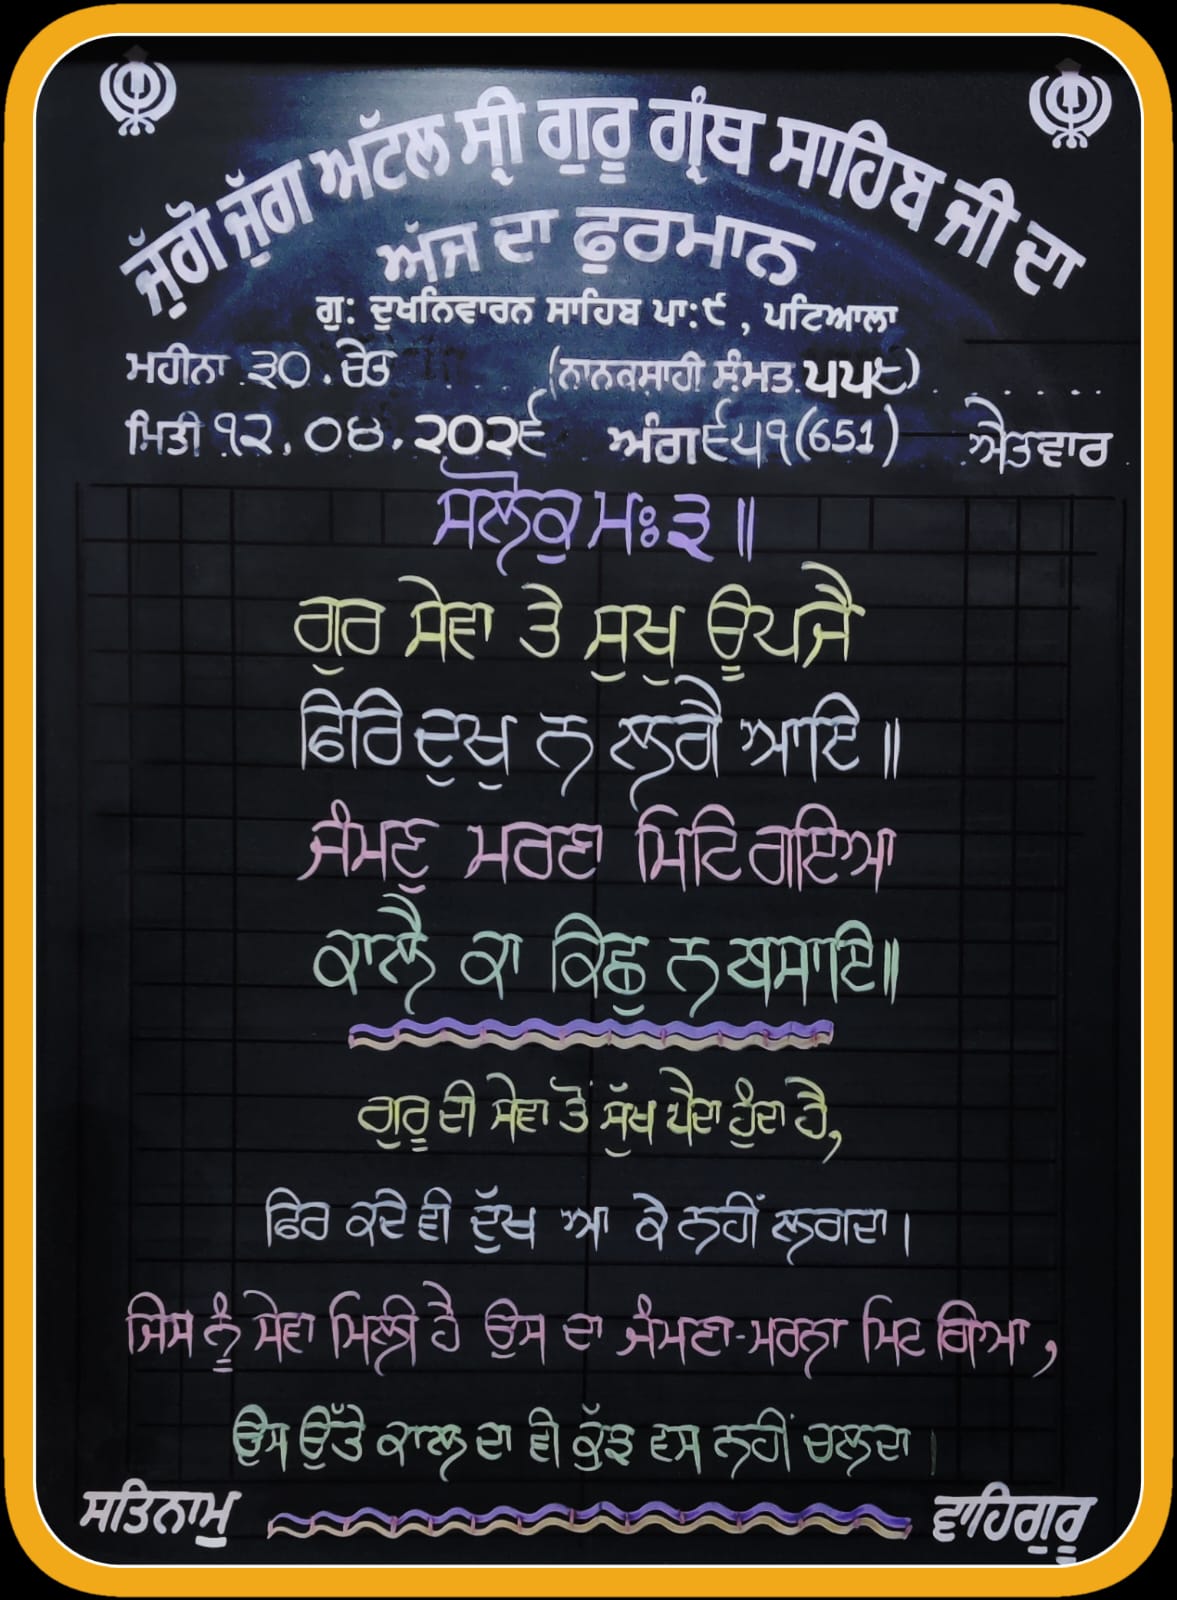 ਜੁੱਗੋ ਜੁੱਗ ਅਟੱਲ ਸ੍ਰੀ ਗੁਰੂ ਗ੍ਰੰਥ ਸਾਹਿਬ ਜੀ ਦਾ
ਅੱਜ ਦਾ ਫੁਰਮਾਨ
ਗੁ: ਦੁਖਨਿਵਾਰਨ ਸਾਹਿਬ ਪਾ:੯ , ਪਟਿਆਲਾ
ਮਹੀਨਾ ੩੦. ਚੇਤ (ਨਾਨਕਸ਼ਾਹੀ ਸੰਮਤ ੫੫੮)
ਮਿਤੀ ੧੨.੦੪.੨੦੨੬ ਅੰਗ ੬੫੧(651) ਐਤਵਾਰ
ਸਲੋਕੁ ਮਃ ੩ ॥
ਗੁਰ ਸੇਵਾ ਤੇ ਸੁਖੁ ਊਪਜੈ
ਫਿਰਿ ਦੁਖੁ ਨ ਲਗੈ ਆਇ ॥
ਜੰਮਣੁ ਮਰਣਾ ਮਿਟਿ ਗਇਆ
ਕਾਲੈ ਕਾ ਕਿਛੁ ਨ ਬਸਾਇ॥
ਗੁਰੂ ਦੀ ਸੇਵਾ ਤੋਂ ਸੁੱਖ ਪੈਦਾ ਹੁੰਦਾ ਹੈ,
ਫਿਰ ਕਦੇ ਵੀ ਦੁੱਖ ਆ ਕੇ ਨਹੀਂ ਲਗਦਾ।
ਜਿਸ ਨੂੰ ਸੇਵਾ ਮਿਲੀ ਹੈ ਉਸ ਦਾ ਜੰਮਣਾ-ਮਰਨਾ ਮਿਟ ਗਿਆ,
ਉਸ ਉੱਤੇ ਕਾਲ ਦਾ ਵੀ ਕੁੱਝ ਵਸ ਨਹੀਂ ਚਲਦਾ।
ਸਤਿਨਾਮੁ ਵਾਹਿਗੁਰੂ